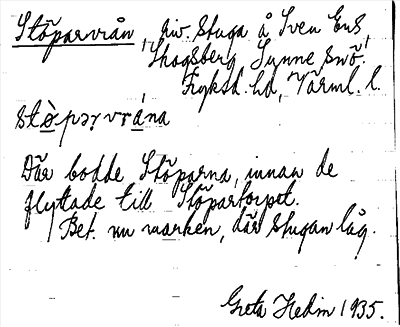 Stöparvrån, riv. stuga å Sven Ers,
Skogsberg, Sunne sn ö.
Fryksd. hd, Värml. l.
stö̀pəṛvrána
Där bodde Stöparna, innan de
flyttade till Stöpartorpet.
Bet. nu marken, där stugan låg.
Greta Hedin 1935.